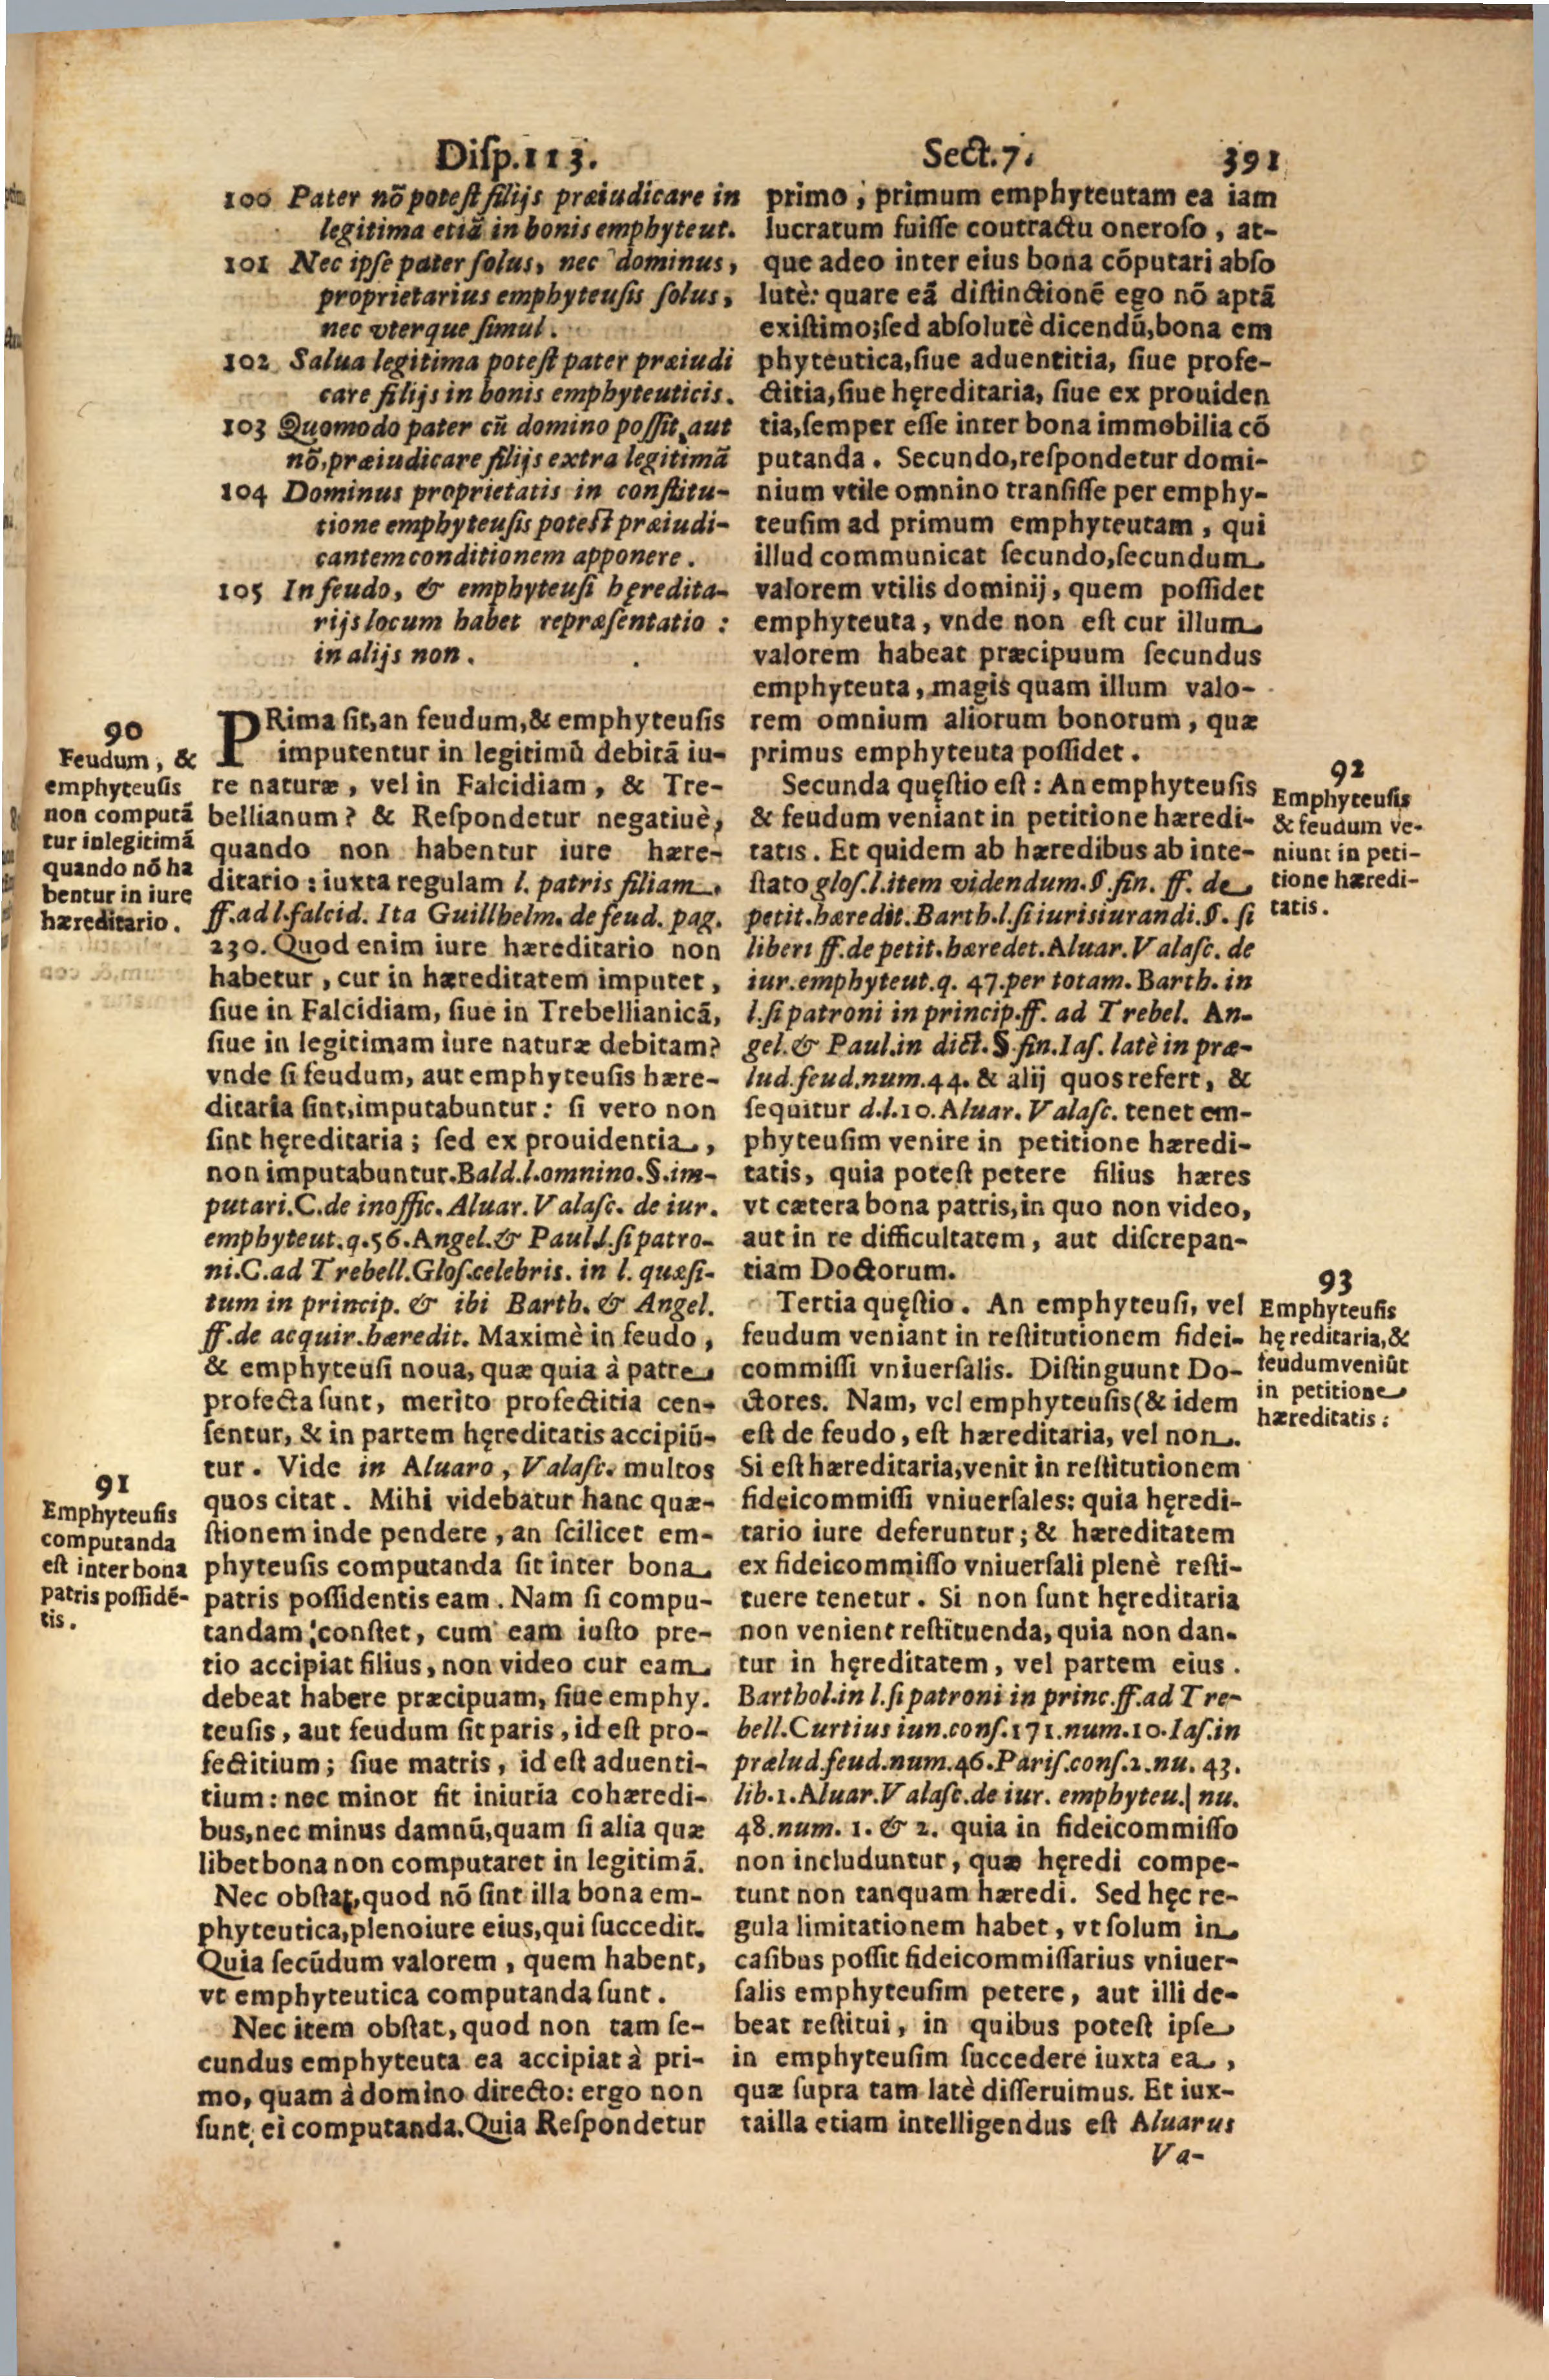 Disp.113.
Sect.7.
391
100 Pater nõ potest filijs præiudicare in
legitima etiã in bonis emphyteut.
101 Nec ipse pater solus, nec dominus,
proprietarius emphyteusis solus,
nec vterque simul.
102 Salua legitima potest pater præiudi
care filijs in bonis emphyteuticis.
103 Quomodo pater cũ domino possit, aut
nõ, præiudicare filijs extra legitimã
104 Dominus proprietatis in constitu-
tione emphyteusis potest præiudi-
cantem conditionem apponere.
105 In feudo, & emphyteusi hęredita-
rijs locum habet repræsentatio :
in alijs non.
90
Feudum, &
emphyteusis
non computã
tur in legitimã
quando nõ ha
bentur in iure
hæreditario.
PRima sit, an feudum, & emphyteusis
imputentur in legitimũ debitã iu-
re naturæ, vel in Falcidiam, & Tre-
bellianum? & Respondetur negatiuè,
quando non habentur iure hære-
ditario : iuxta regulam l. patris filiam.
ff. ad l. falcid. Ita Guillhelm. de feud. pag.
230. Quod enim iure hæreditario non
habetur, cur in hæreditatem imputet,
siue in Falcidiam, siue in Trebellianicã,
siue in legitimam iure naturæ debitam?
vnde si feudum, aut emphyteusis hære-
ditaria sint, imputabuntur: si vero non
sint hęreditaria; sed ex prouidentia,
non imputabuntur. Bald. l. omnino. §. im-
putari. C. de inoffic. Aluar. Valasc. de iur.
emphyteut. q. 56. Angel. & Paul. l. si patro-
ni. C. ad Trebell. Glos. celebris. in l. quæsi-
tum in princip. & ibi Barth. & Angel.
ff. de acquir. hæredit. Maximè in feudo,
& emphyteusi noua, quæ quia à patre
profecta sunt, merito profectitia cen-
sentur, & in partem hęreditatis accipiũ-
tur. Vide in Aluaro, Valasc. multos
quos citat. Mihi videbatur hanc quæ-
stionem inde pendere, an scilicet em-
phyteusis computanda sit inter bona
patris possidentis eam. Nam si compu-
tandam constet, cum eam iusto pre-
tio accipiat filius, non video cur eam
debeat habere præcipuam, siue emphy.
teusis, aut feudum sit paris, id est pro-
fectitium; siue matris, id est aduenti-
tium: nec minor fit iniuria cohæredi-
bus, nec minus damnũ, quam si alia quæ
libet bona non computaret in legitimã.
Nec obstat, quod nõ sint illa bona em-
phyteutica, pleno iure eius, qui succedit.
Quia secũdum valorem, quem habent,
vt emphyteutica computanda sunt.
Nec item obstat, quod non tam se-
cundus emphyteuta ea accipiat à pri-
mo, quam à domino directo: ergo non
sunt ei computanda. Quia Respondetur
91
Emphyteusis
computanda
est inter bona
patris possidẽ-
tis.
primo, primum emphyteutam ea iam
lucratum fuisse coutractu oneroso, at-
que adeo inter eius bona cõputari abso
lutè: quare eã distinctionẽ ego nõ aptã
existimo; sed absolutè dicendũ, bona em
phyteutica, siue aduentitia, siue profe-
ctitia, siue hęreditaria, siue ex prouiden
tia, semper esse inter bona immobilia cõ
putanda. Secundo, respondetur domi-
nium vtile omnino transisse per emphy-
teusim ad primum emphyteutam, qui
illud communicat secundo, secundum
valorem vtilis dominij, quem possidet
emphyteuta, vnde non est cur illum
valorem habeat præcipuum secundus
emphyteuta, magis quam illum valo-
rem omnium aliorum bonorum, quæ
primus emphyteuta possidet.
Secunda quęstio est: An emphyteusis
& feudum veniant in petitione hæredi-
tatis. Et quidem ab hæredibus ab inte-
stato glos. l. item videndum. §. fin. ff. de
petit. hæredit. Barth. l. si iurisiurandi. §. si
liberi ff. de petit. hæredet. Aluar. Valasc. de
iur. emphyteut. q. 47. per totam. Barth. in
l. si patroni in princip. ff. ad Trebel. An-
gel. & Paul. in dict. §. fin. Ias. latè in præ-
lud. feud. num. 44. & alij quos refert, &
sequitur d. l. 10. Aluar. Valasc. tenet em-
phyteusim venire in petitione hæredi-
tatis, quia potest petere filius hæres
vt cætera bona patris, in quo non video,
aut in re difficultatem, aut discrepan-
tiam Doctorum.
Tertia quęstio. An emphyteusi, vel
feudum veniant in restitutionem fidei-
commissi vniuersalis. Distinguunt Do-
ctores. Nam, vel emphyteusis (& idem
est de feudo, est hæreditaria, vel non.
Si est hæreditaria, venit in restitutionem
fideicommissi vniuersales: quia hęredi-
tario iure deferuntur; & hæreditatem
ex fideicommisso vniuersali plenè resti-
tuere tenetur. Si non sunt hęreditaria
non venient restituenda, quia non dan-
tur in hęreditatem, vel partem eius.
Barthol. in l. si patroni in princ. ff. ad Tre-
bell. Curtius iun. cons. 171. num. 10. Ias. in
prælud. feud. num. 46. Paris. cons. 2. nu. 43.
lib. 1. Aluar. Valasc. de iur. emphyteu. nu.
48. num. 1. & 2. quia in fideicommisso
non includuntur, quæ hęredi compe-
tunt non tanquam hæredi. Sed hęc re-
gula limitationem habet, vt solum in
casibus possit fideicommissarius vniuer-
salis emphyteusim petere, aut illi de-
beat restitui, in quibus potest ipse
in emphyteusim succedere iuxta ea,
quæ supra tam latè disseruimus. Et iux-
ta illa etiam intelligendus est Aluarus
Va-
92
Emphyteusis
& feudum ve-
niunt in peti-
tione hæredi-
tatis.
93
Emphyteusis
hę reditaria, &
feudum veniũt
in petitione
hæreditatis: